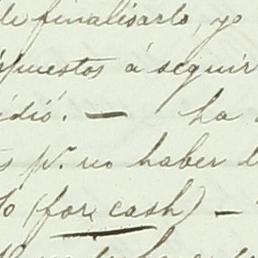 de finalisarlo, yo
puestos á seguir
idió. — ha
s pr. no haber l
to (for cash) —